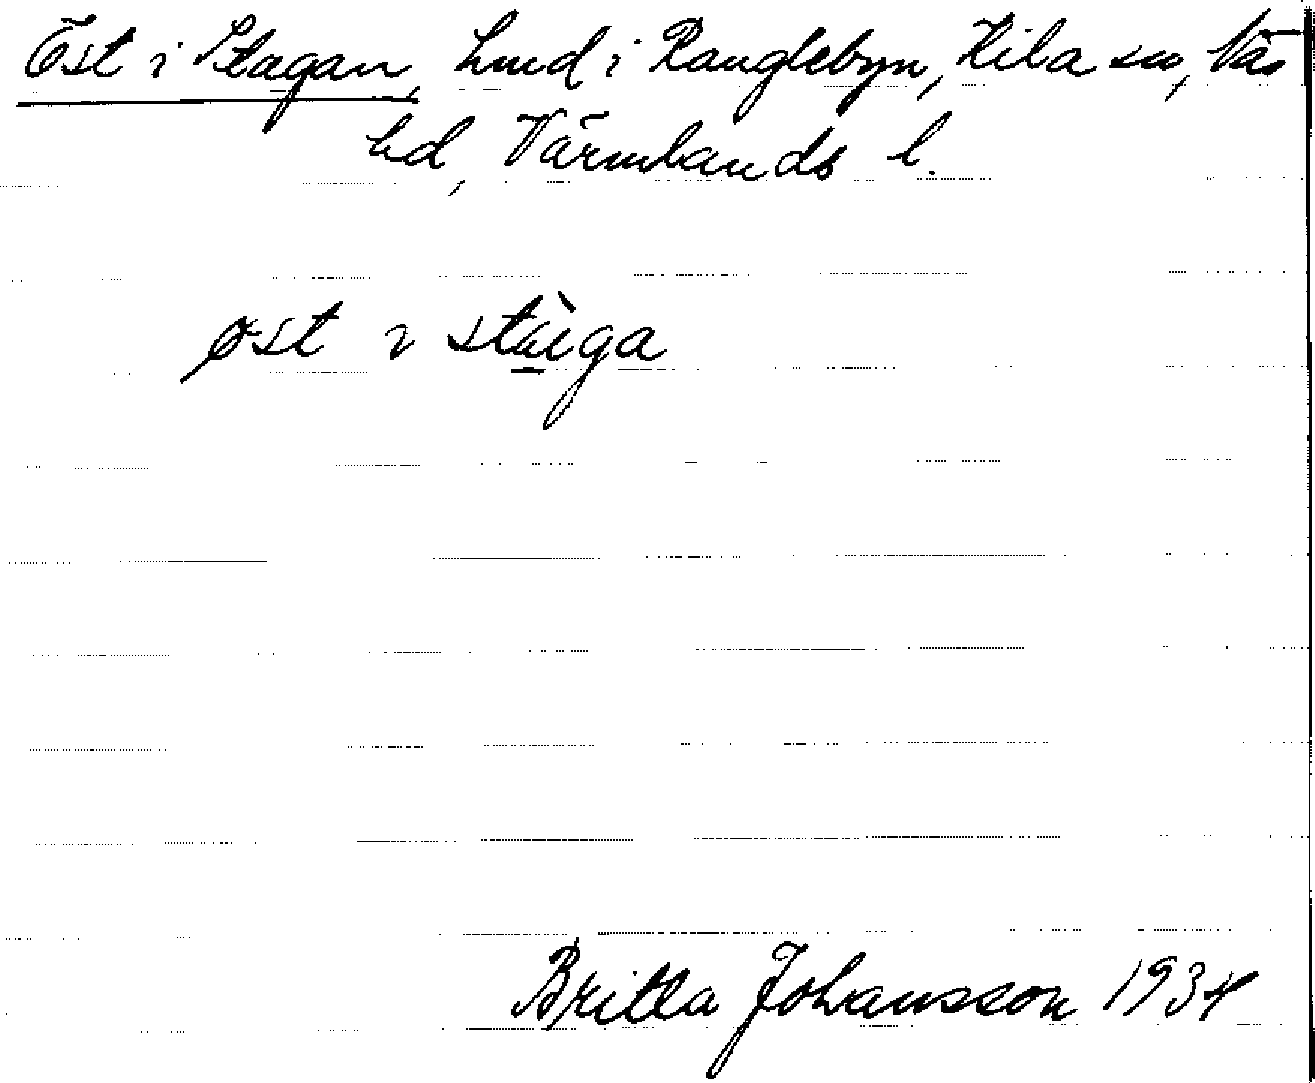 Öst i Stagan, hmd i Ranglebyn, Kila sn, Näs
hd, Värmlands l.
øst i stæ̀ga
Britta Johansson 1934